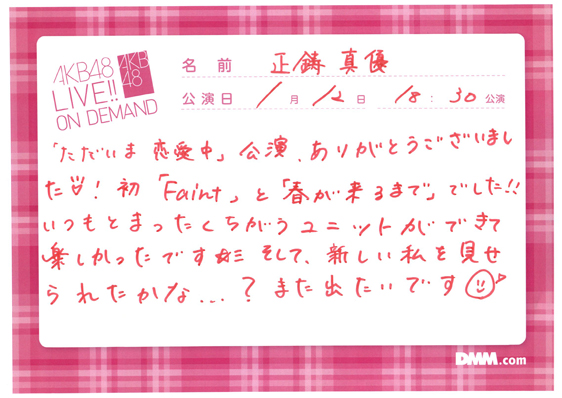 AKB48
LIVE!!
ON DEMAND
AKB
48
名前 正鋳 真優
公演日 1月12日 18:30公演
「ただいま 恋愛中」公演、ありがとうございまし
た！初「Faint」と「春が来るまで」でした!!
いつもとまったくちがうユニットができて
楽しかったです そして、新しい私を見せ
られたかな...？また出たいです
DMM.com